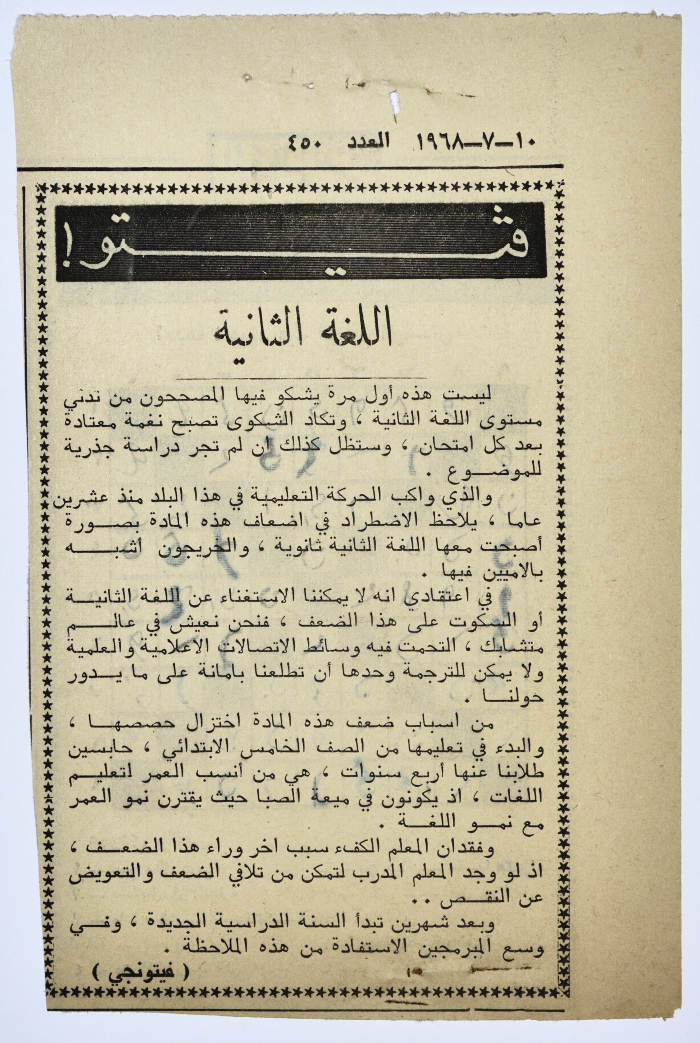 ١٠-٧-١٩٦٨ العدد ٤٥٠
ڤيتو!
اللغة الثانية
ليست هذه أول مرة يشكو فيها المصححون من تدني
مستوى اللغة الثانية ، وتكاد الشكوى تصبح نغمة معتادة
بعد كل امتحان ، وستظل كذلك ان لم تجر دراسة جذرية
للموضوع .
والذي واكب الحركة التعليمية في هذا البلد منذ عشرين
عاما ، يلاحظ الاضطراد في اضعاف هذه المادة بصورة
أصبحت معها اللغة الثانية ثانوية ، والخريجون أشبه
بالاميين فيها .
في اعتقادي انه لا يمكننا الاستغناء عن اللغة الثانية
أو السكوت على هذا الضعف ، فنحن نعيش في عالم
متشابك ، التحمت فيه وسائط الاتصالات الاعلامية والعلمية
ولا يمكن للترجمة وحدها أن تطلعنا بامانة على ما يدور
حولنا .
من اسباب ضعف هذه المادة اختزال حصصها ،
والبدء في تعليمها من الصف الخامس الابتدائي ، حابسين
طلابنا عنها أربع سنوات ، هي من أنسب العمر لتعليم
اللغات ، اذ يكونون في ميعة الصبا حيث يقترن نمو العمر
مع نمو اللغة .
وفقدان المعلم الكفء سبب اخر وراء هذا الضعف ،
اذ لو وجد المعلم المدرب لتمكن من تلافي الضعف والتعويض
عن النقص ..
وبعد شهرين تبدأ السنة الدراسية الجديدة ، وفي
وسع المبرمجين الاستفادة من هذه الملاحظة .
( فيتونجي )